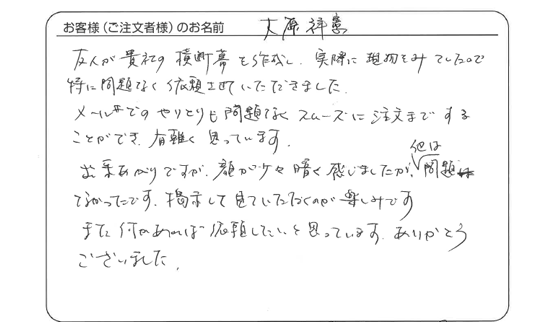 お客様(ご注文者様)のお名前 大原祥憲
友人が貴社の横断幕を作成し、実際に現物をみていたので
特に問題なく依頼させていただきました。
メール等でのやりとりも問題なくスムーズに注文まですることができ、有難く思っています。
出来あがりですが、顔が少々暗く感じましたが、他は問題
なかったです。掲示して見ていただくのが楽しみです
また何かあれば依頼したいと思っています。ありがとう
ございました。